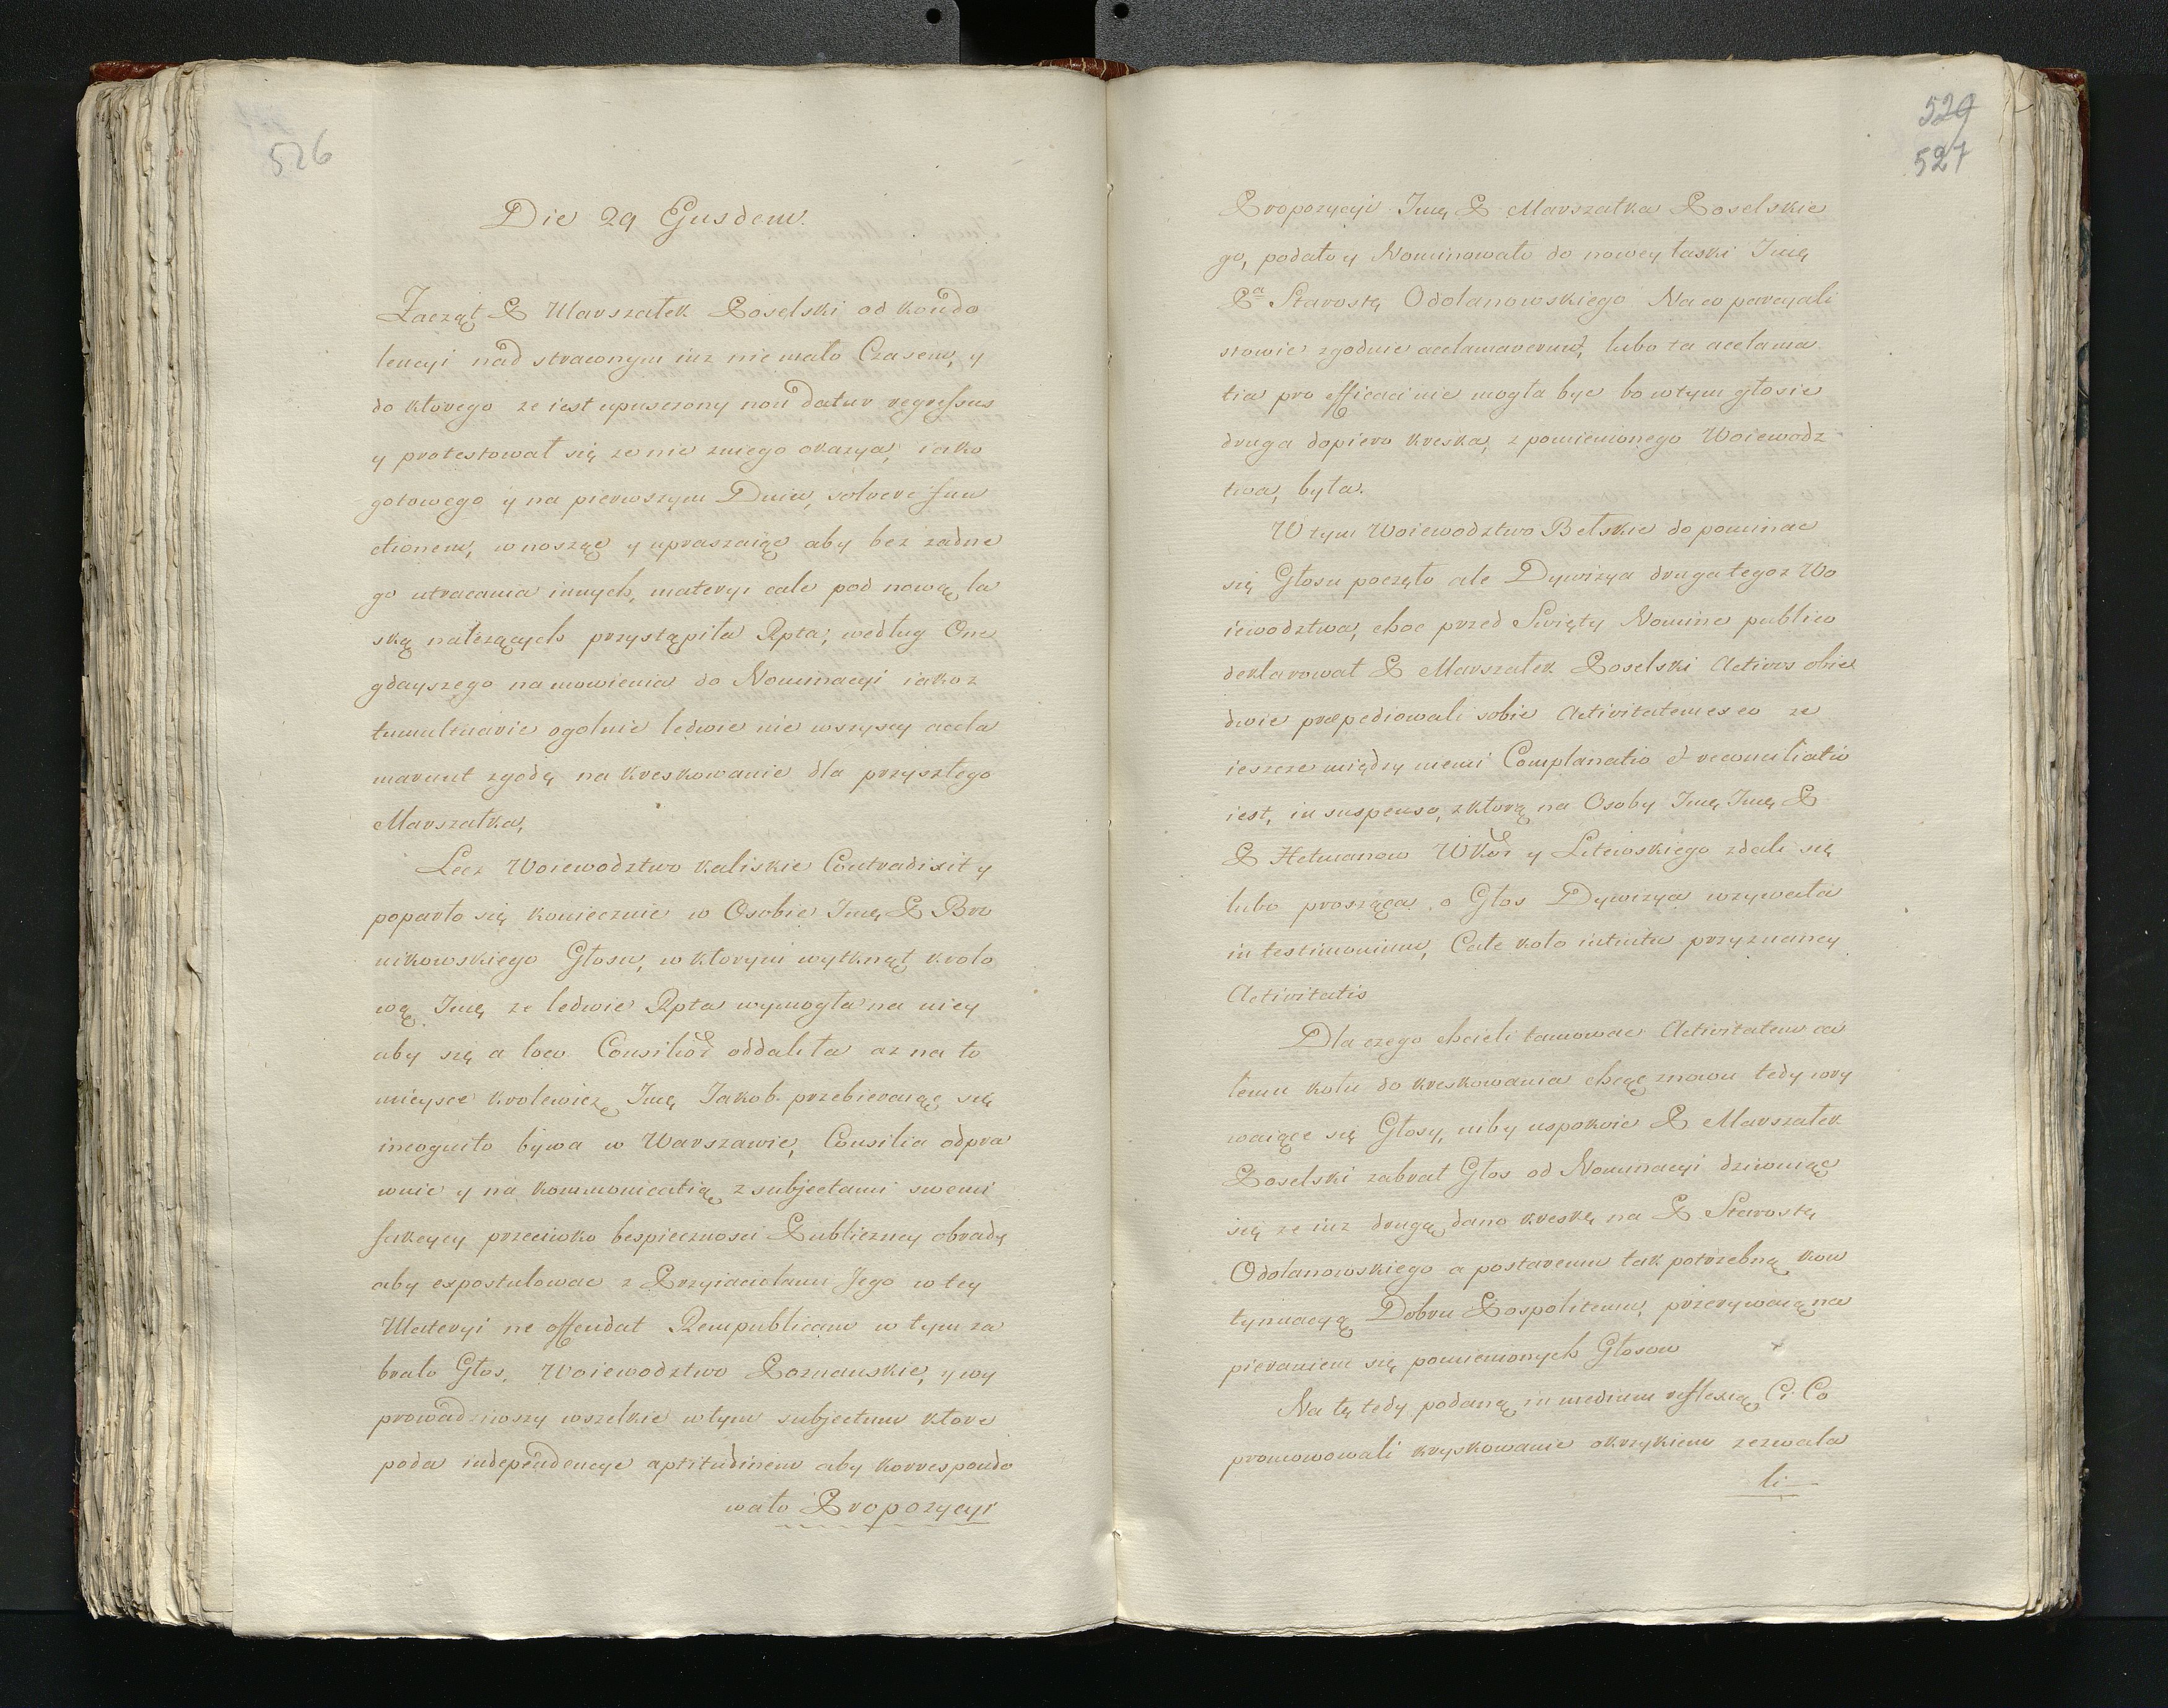 526
Die 29 Ejusdem.
Zaczął P Marszałek Poselski od kondo
lencyi nad strawonym iuz nie mało Czasem, y
do ktorego ze iest upuszczony non datur regressus
y protestował się ze nie zniego okazya, iako
gotowego y na pierwszym Dniu, solvere fun
ctionem, wnosząc y upraszaiąc aby bez zadne
go utracania innych, materyi cale pod nową la
ską należących przystąpiła Rpta; według One
gdayszego namowienia do Nominacyi iakoz
tumultuarie ogolnie ledwie nie wszyscy accla
marunt zgodę na kreskowanie dla przyszłego
Marszałka,
Lecz Woiewodztwo kaliskie Contradixit y
poparło się koniecznie w Osobie Jmę P Bro
nikowskiego Głosu, w ktorym wytknął krolo
wę Jmę ze ledwie Rpta wymogła na niey
aby się a loco Consilior oddaliła az na to
mieysce krolewicz Jmę Jakob przebieraiąc się
incognito bywa w Warszawie, Consilia odpra
wuie y na kommonicatią z subjectami swemi
fakcyey przeciwko bespiecznosci Publiczney obrady
aby expostulowac z Przyiaciolami Jego w tey
Materyi ne offendat Rempublicam w tym za
brało Głos, Woiewodztwo Poznanskie, y wy
prowadziwszy wszelkie w tym subjectum ktore
poda independencye aptitudinem aby korrespondo
wało Propozycyi
529
527
Propozycyi Jmę P Marszałka Poselskie
go, podało y Nominowało do nowey laski Jmę
Pa Starostę Odolanowskiego Na co parcyali
stowie zgodnie acclamaverunt, lubo ta acclama
tia pro efficaci nie mogła byc bo w tym głosie
druga dopiero kreska, z pomienionego Woiewodz
twa, była.
W tym Woiewodztwo Bełskie dopominac
się Głosu poczęło ale Dywizya druga tegoz Wo
iewodztwa, choc przed Swięty Nomine publico
deklarował P Marszałek Poselski Activos obie
dwie præpediowali sobie Activitatem ex eo ze
ieszcze między niemi Complanatio et reconciliatio
iest, in suspenso, z ktorą na Osoby Jmę Jmę P
P Hetmanow WKor y Litewskiego zdali się
lubo prosząca o Głos Dywizya wzywała
in testimonium, Całe koło intuitu przyznaney
Activitatis
Dla czego chcieli tamowac Activitatem ca
łemu kołu do kreskowania chcąc znowu tedy wry
waiące się Głosy, niby uspokoic P Marszałek
Poselski zabrał Głos od Nominacyi dziwuiąc
się ze iuz drugą dano kreskę na P Starostę
Odolanowskiego a postaremu tak potrzebną kon
tynuacyą Dobru Pospolitemu, przerywaią na
pieraniem się pomienionych Głosow
Na tę tedy podaną in medium reflexią C. Co
promowowali kryskowanie okrzykiem zezwala
li